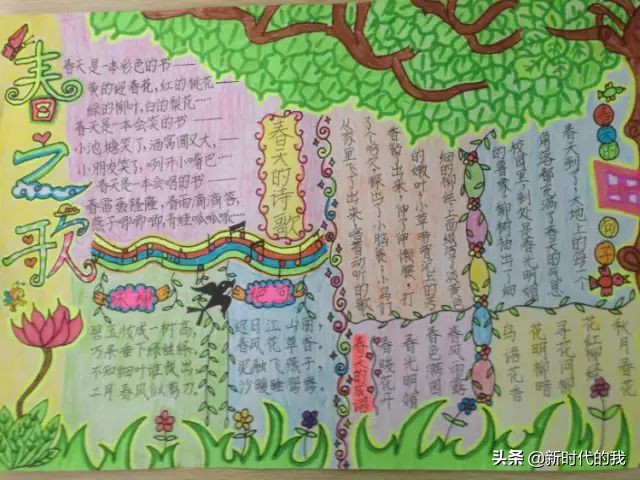 春之歌
春天是一本彩色的书——
黄的迎春花,红的桃花——
绿的柳叶,白的梨花……
春天是一本会笑的书——
小池塘笑了,酒窝圆又大,——
小朋友笑了,咧开小嘴巴……
春天是一本会唱的书——
春雷轰隆隆,春雨滴滴答,
燕子唧唧唧,青蛙呱呱呱……
春天的诗歌
春天到了,大地上的每一个
角落都充满了春天的气息
校园里,到处是春光明媚
的景象,柳树抽出了细
细的柳丝,上面缀满了淡黄色
的嫩叶,小草带着
春笋
了出来,伸了伸懒腰,打
了个哈欠,探出了小脑袋,小鸟们
从家里飞了出来,唱着动听的歌
春
的
句子
咏柳
碧玉妆成一树高,
万条垂下绿丝绦,
不知细叶谁裁出,
二月春风似剪刀。
绝句
迟日江山丽
春风花草香
泥融飞燕子
沙暖睡鸳鸯。
春天的成语
秋月春花
花红柳绿
寻花问柳
花明柳暗
鸟语花香
春风雨露
春色满园
春光明媚
春暖花开
头条 @新时代的我